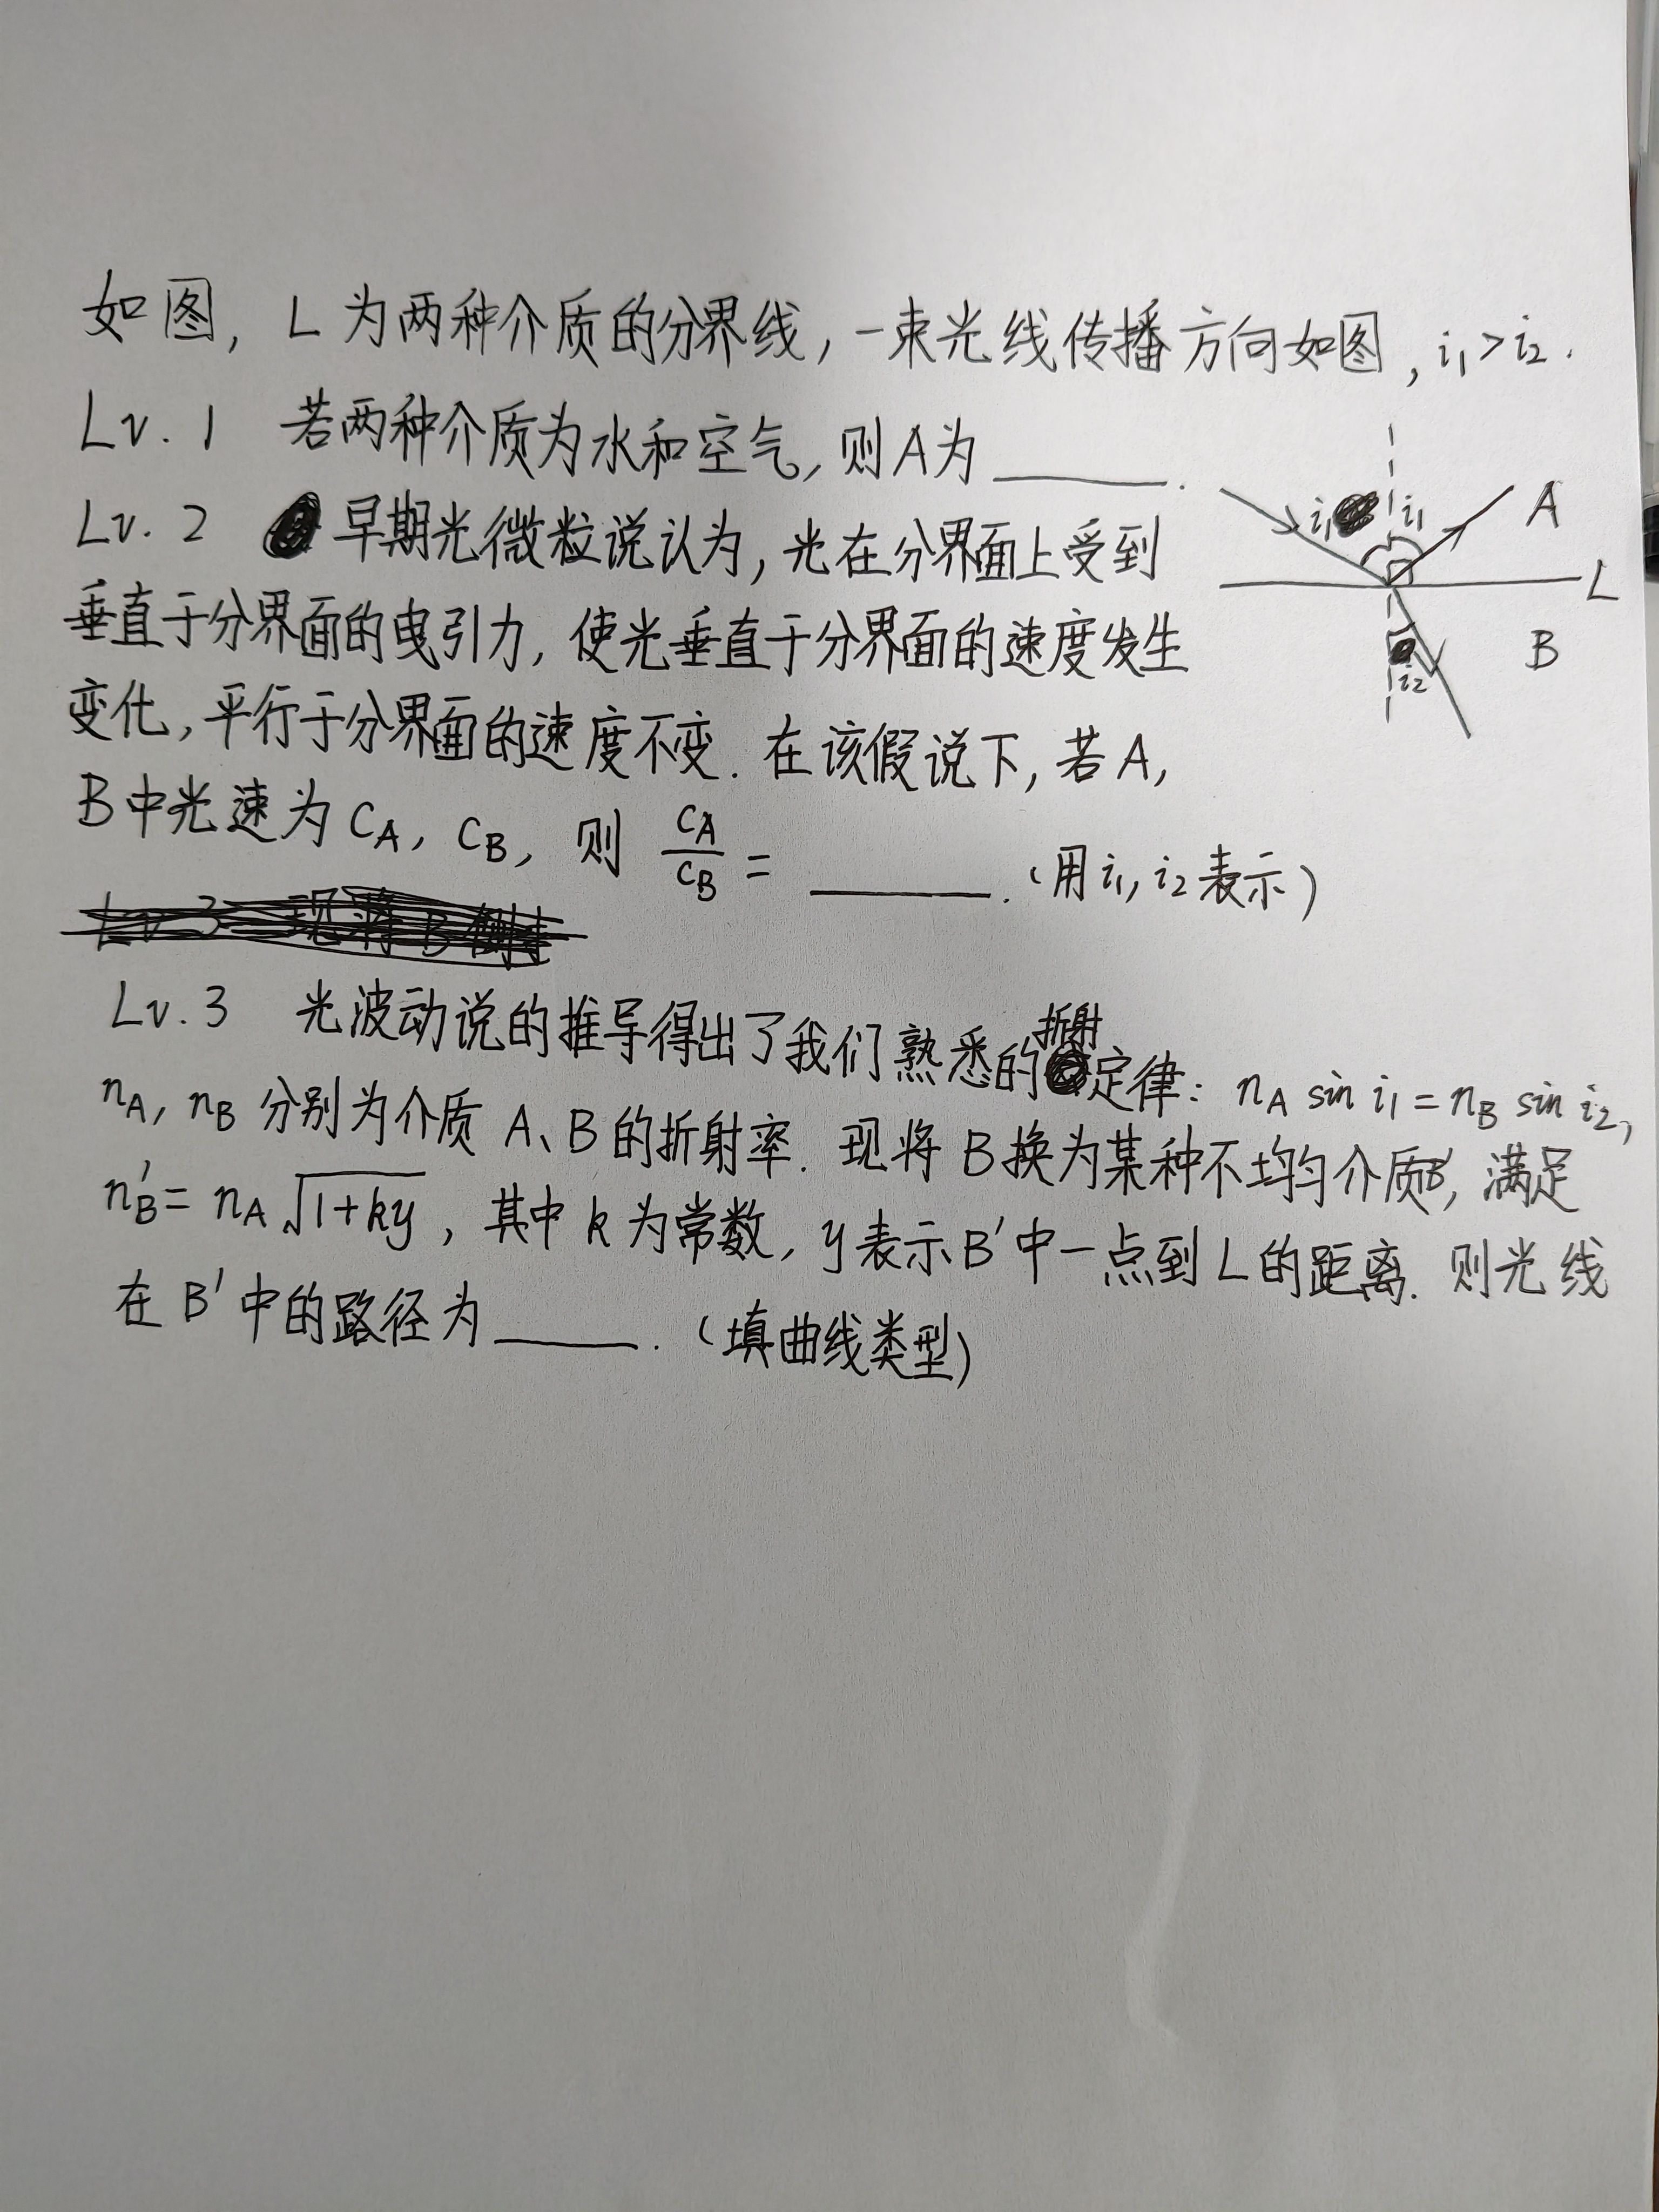 如图, L 为两种介质的分界线, 一束光线传播方向如图, i₁>i₂.
Lv. 1 若两种介质为水和空气, 则A为______.
Lv. 2 早期光微粒说认为, 光在分界面上受到
垂直于分界面的曳引力, 使光垂直于分界面的速度发生
变化, 平行于分界面的速度不变. 在该假说下, 若A,
B中光速为 c_A, c_B, 则 c_A/c_B = ______. (用 i₁, i₂ 表示)
Lv. 3 光波动说的推导得出了我们熟悉的折射定律: n_A sin i₁ = n_B sin i₂,
n_A, n_B 分别为介质 A、B 的折射率. 现将 B 换为某种不均匀介质B', 满足
n_B' = n_A √(1+ky), 其中 k 为常数, y 表示 B' 中一点到 L 的距离. 则光线
在 B' 中的路径为______. (填曲线类型)
i₁ i₁ A
L
B
i₂